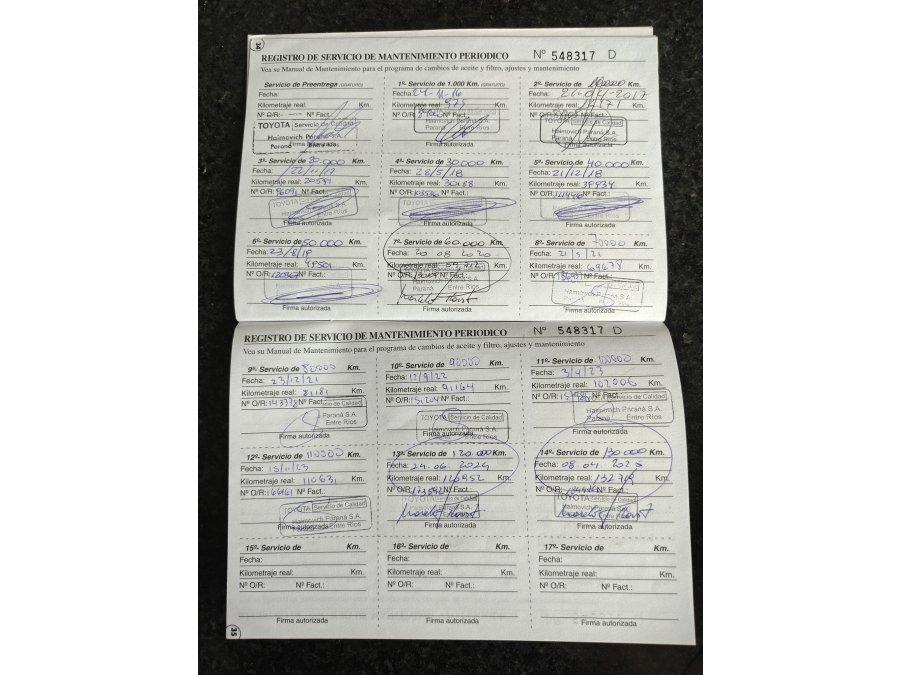 34
REGISTRO DE SERVICIO DE MANTENIMIENTO PERIODICO Nº 548317 D
Vea su Manual de Mantenimiento para el programa de cambios de aceite y filtro, ajustes y mantenimiento
Servicio de Preentrega (GRATUITO)
Fecha:
Kilometraje real: Km.
Nº O/R: Nº Fact.:
TOYOTA Servicio de Calidad
Haimovich Paraná S.A.
Paraná Entre Ríos
Firma autorizada
1º- Servicio de 1.000 Km. (GRATUITO)
Fecha: 24-11-16
Kilometraje real: 975 Km.
Nº O/R: Nº Fact.:
Haimovich Paraná S.A.
Paraná Entre Ríos
Firma autorizada
2º- Servicio de 10000 Km.
Fecha: 2017
Kilometraje real: Km.
Servicio de Calidad
Haimovich Paraná S.A.
Paraná Entre Ríos
Firma autorizada
3º- Servicio de 20.000 Km.
Fecha: 22/11/17
Kilometraje real: 20591 Km.
Nº O/R: 96091 Nº Fact.:
TOYOTA
Haimovich
Entre Ríos
Firma autorizada
4º- Servicio de 30.000 Km.
Fecha: 28/5/18
Kilometraje real: 30188 Km.
Nº O/R: Nº Fact.:
TOYOTA
Firma autorizada
5º- Servicio de 40.000 Km.
Fecha: 21/12/18
Kilometraje real: 39934 Km.
Nº O/R: Nº Fact.:
TOYOTA
Firma autorizada
6º- Servicio de 50.000 Km.
Fecha: 23/8/19
Kilometraje real: 49501 Km.
Nº O/R: 120367 Nº Fact.:
Firma autorizada
7º- Servicio de 60.000 Km.
Fecha: 20 08 2020
Kilometraje real: Km.
Nº O/R: Nº Fact.:
Paraná Entre Ríos
Firma autorizada
8º- Servicio de 70000 Km.
Fecha: 21/5/21
Kilometraje real: 69678 Km.
Nº O/R: Nº Fact.:
TOYOTA
Haimovich Paraná S.A.
Entre Ríos
Firma autorizada
REGISTRO DE SERVICIO DE MANTENIMIENTO PERIODICO Nº 548317 D
Vea su Manual de Mantenimiento para el programa de cambios de aceite y filtro, ajustes y mantenimiento
9º- Servicio de 80000 Km.
Fecha: 23/12/21
Kilometraje real: 81181 Km.
Nº O/R: 143378 Nº Fact.:
Servicio de Calidad
Paraná S.A.
Entre Ríos
Firma autorizada
10º- Servicio de 90000 Km.
Fecha: 12/9/22
Kilometraje real: 91164 Km.
Nº O/R: 151204 Nº Fact.:
TOYOTA Servicio de Calidad
Haimovich Paraná S.A.
Entre Ríos
Firma autorizada
11º- Servicio de 100000 Km.
Fecha: 3/4/23
Kilometraje real: 102006 Km.
Nº O/R: Nº Fact.:
Servicio de Calidad
Haimovich Paraná S.A.
Paraná Entre Ríos
Firma autorizada
12º- Servicio de 110000 Km.
Fecha: 15/11/23
Kilometraje real: 110631 Km.
Nº O/R: 166161 Nº Fact.:
TOYOTA Servicio de Calidad
Haimovich Paraná S.A.
Entre Ríos
Firma autorizada
13º- Servicio de 120.000 Km.
Fecha: 24.06.2024
Kilometraje real: 120952 Km.
Nº O/R: 173592 Nº Fact.:
TOYOTA Servicio de Calidad
Entre Ríos
Firma autorizada
14º- Servicio de 130.000 Km.
Fecha: 08.04.2025
Kilometraje real: Km.
Nº O/R: Nº Fact.:
TOYOTA Servicio de Calidad
Haimovich Paraná S.A.
Paraná
Firma autorizada
15º- Servicio de Km.
Fecha:
Kilometraje real: Km.
Nº O/R: Nº Fact.:
Firma autorizada
16º- Servicio de Km.
Fecha:
Kilometraje real: Km.
Nº O/R: Nº Fact.:
Firma autorizada
17º- Servicio de Km.
Fecha:
Kilometraje real: Km.
Nº O/R: Nº Fact.:
Firma autorizada
35